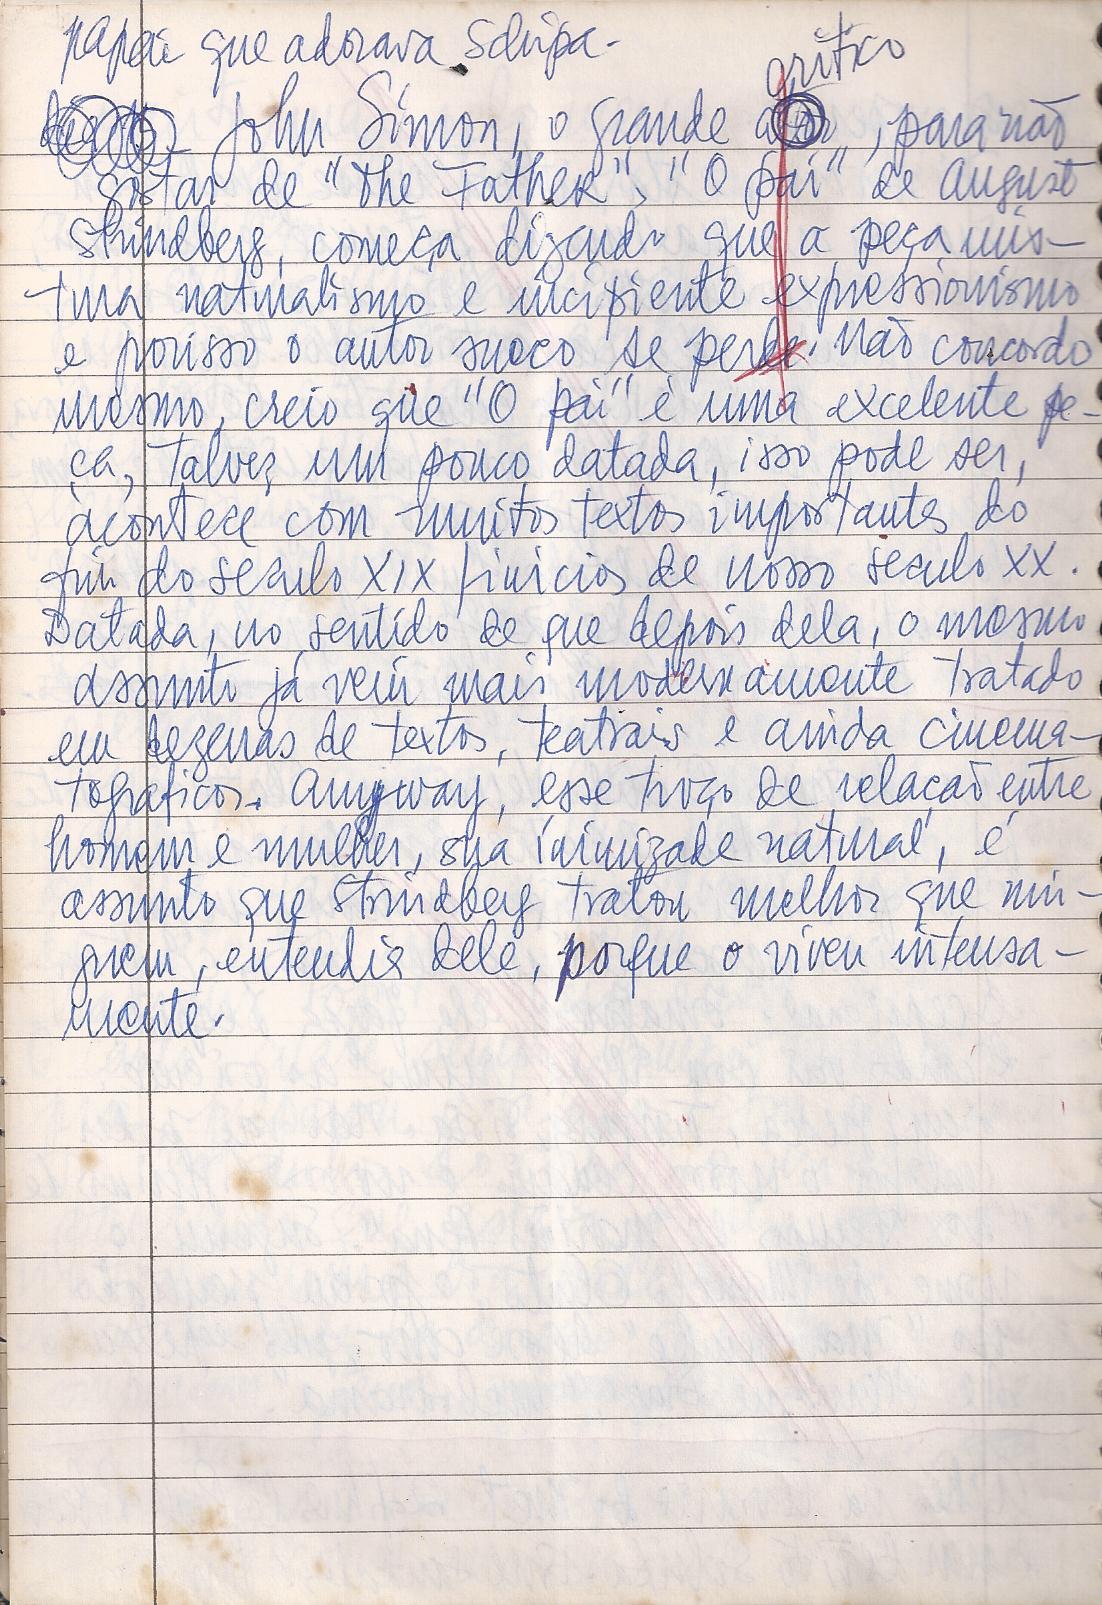 papai que adorava Schipa-
crítico
John Simon, o grande ator, para não
gostar de "The Father", "O pai" de August
Strindberg, começa dizendo que a peça mis-
tura naturalismo e incipiente expressionismo
e porisso o autor sueco se perde. Não concordo
mesmo, creio que "O pai" é uma excelente pe-
ça, Talvez um pouco datada, isso pode ser,
acontece com muitos textos importantes do
fin do seculo XIX / inicios de nosso seculo XX.
Datada, no sentido de que depois dela, o mesmo
assunto já vem mais modernamente tratado
em dezenas de textos, teatrais e ainda cinema-
tograficos. Anyway, esse troço de relação entre
homem e mulher, sua inimizade natural, é
assunto que Strindberg tratou melhor que nin-
guem, entendia dele, porque o viveu intensa-
mente.